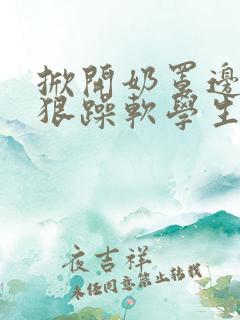 掀開奶罩邊
狠躁軟學生
夜吉祥
未经同意禁止转载